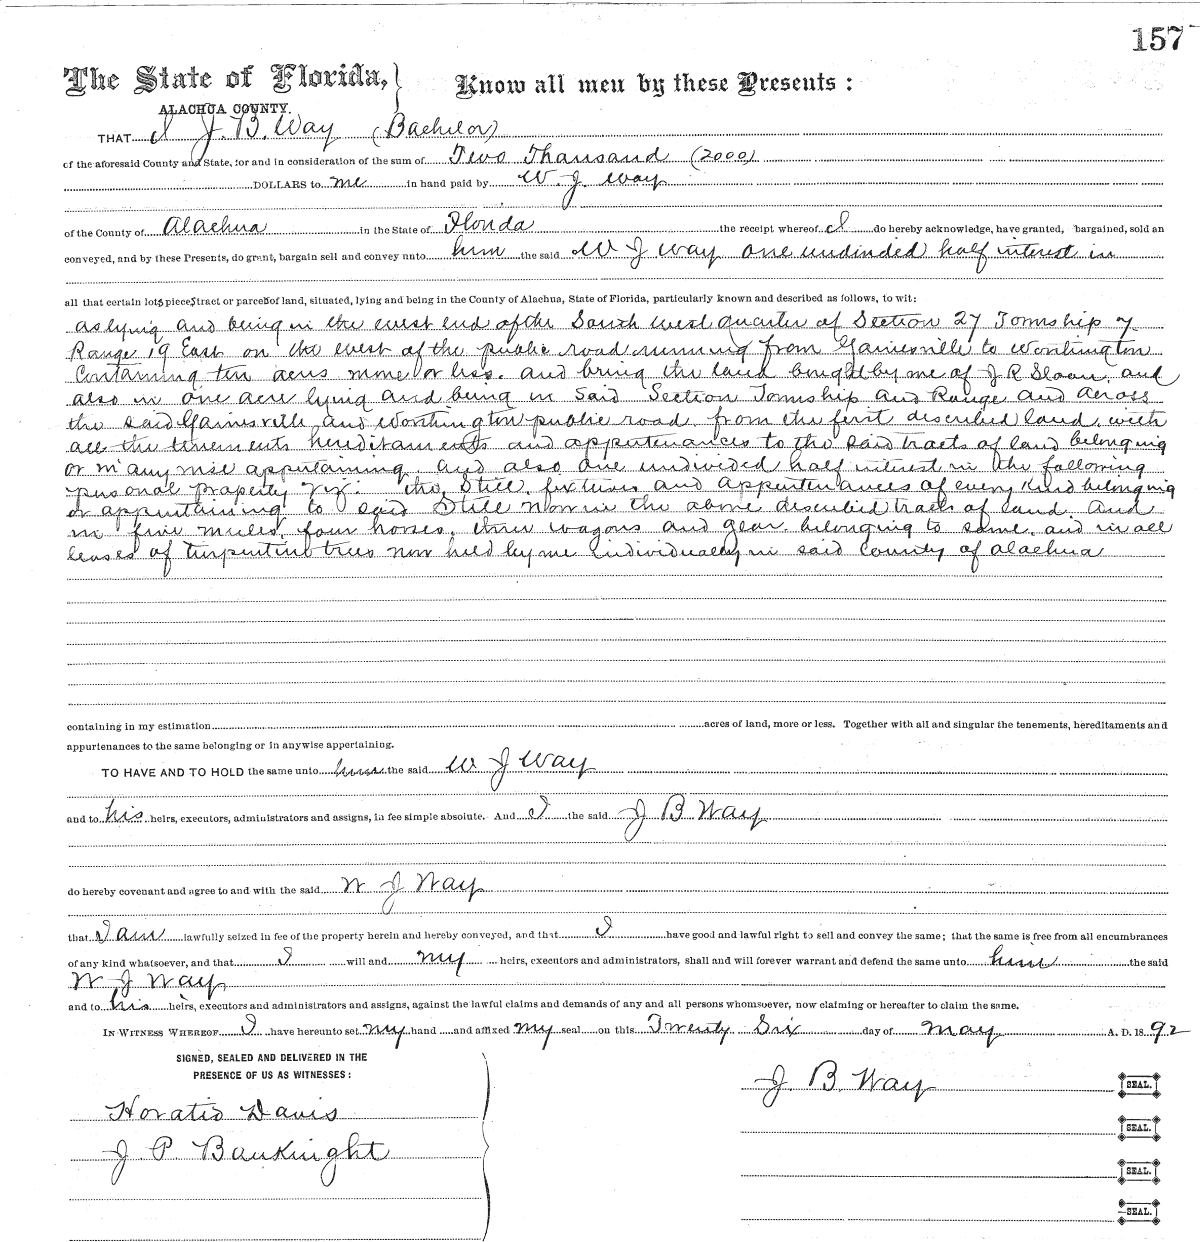 157
The State of Florida, Know all men by these Presents:
ALACHUA COUNTY.
THAT I J. B. Way (Bachelor)
of the aforesaid County and State, for and in consideration of the sum of Two Thousand (2000)
DOLLARS to me in hand paid by W. J. Way
of the County of Alachua in the State of Florida the receipt whereof I do hereby acknowledge, have granted, bargained, sold an
conveyed, and by these Presents, do grant, bargain sell and convey unto him the said W J Way one undivided half interest in
all that certain lots piece, tract or parcel of land, situated, lying and being in the County of Alachua, State of Florida, particularly known and described as follows, to wit:
as lying and being in the west end of the South west quarter of Section 27 Township 7
Range 19 East on the west of the public road running from Gainesville to Worthington
Containing ten acres more or less. and being the land bought by me of J R Sloan, and
also in one acre lying and being in said Section Township and Range and across
the said Gainesville and Worthington public road, from the first described land, with
all the tenements hereditaments and appurtenances to the said tracts of land belonging
or in any wise appertaining. and also one undivided half interest in the following
personal property viz: the Still, fixtures and appurtenances of every kind belonging
or appertaining to said Still now in the above described tracts of land. And
in five mules, four horses, three wagons and gear belonging to same, and in all
leases of turpentine trees now held by me individually in said County of Alachua
containing in my estimation acres of land, more or less. Together with all and singular the tenements, hereditaments and
appurtenances to the same belonging or in anywise appertaining.
TO HAVE AND TO HOLD the same unto him the said W J Way
and to his heirs, executors, administrators and assigns, in fee simple absolute. And I the said J B Way
do hereby covenant and agree to and with the said W J Way
that I am lawfully seized in fee of the property herein and hereby conveyed, and that I have good and lawful right to sell and convey the same; that the same is free from all encumbrances
of any kind whatsoever, and that I will and my heirs, executors and administrators, shall and will forever warrant and defend the same unto him the said
W J Way
and to his heirs, executors and administrators and assigns, against the lawful claims and demands of any and all persons whomsoever, now claiming or hereafter to claim the same.
IN WITNESS WHEREOF I have hereunto set my hand and affixed my seal on this Twenty Six day of May A. D. 1892
SIGNED, SEALED AND DELIVERED IN THE
PRESENCE OF US AS WITNESSES:
J. B. Way SEAL.
Horatio Davis
SEAL.
J. P. Bauknight
SEAL.
SEAL.